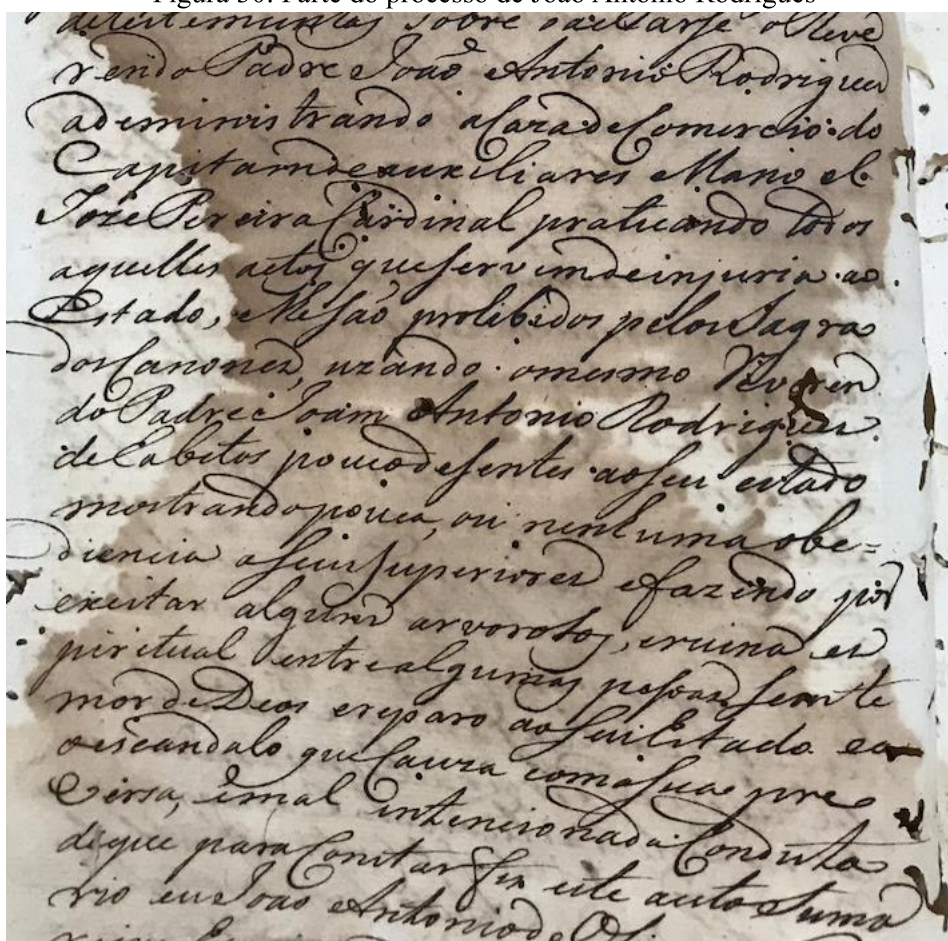 Figura 30: Parte do processo de João Antônio Rodrigues
sobre o Reve
rendo Padre João Antonio Rodrigues
administrando a Caza de Comercio do
Capitam de auxiliares Mano el
Joze Pereira Cardinal praticando todos
aquelles actos, que servem de injuria ao
Estado, e lhe saó prohibidos pelos Sagra
dos Canones, uzando o mesmo Reveren
do Padre Joam Antonio Rodrigues
de Cabitos pouco desentes ao seu estado
mostrando pouca, ou nenhuma obe=
diencia a seus superiores e fazendo por
excitar alguns arvorotos, e ruina es
piritual entre algumas pesoas sem te
mor de Deos e reparo ao seu Estado e ao
o escandalo que Cauza com a sua pre
versa, e mal intencionada Conduta
de que para Constar fiz este auto suma
rio eu João Antonio de